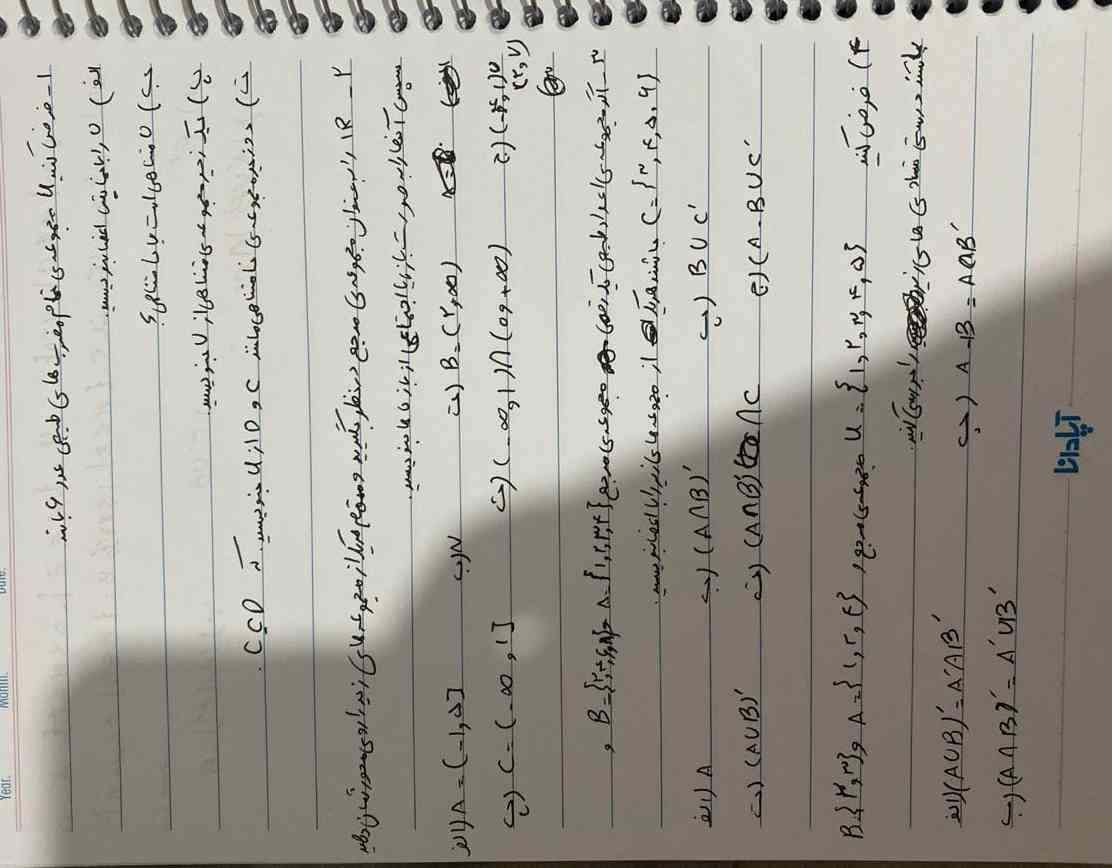 Year. Month. Date.
۱- فرض کنید U مجموعه‌ی تمام مضرب‌های طبیعی عدد ۶ باشد
الف) U را با نمایش اعضا بنویسید.
ب) U متناهی است یا نامتناهی؟
پ) یک زیرمجموعه‌ی متناهی از U بنویسید.
ت) دو زیرمجموعه‌ی نامتناهی مانند C و D از U بنویسید. که
C⊂D .
۲- IR را به عنوان مجموعه‌ی مرجع در نظر بگیرید و متمم هر یک از مجموعه‌های زیر را روی محور نشان دهید
سپس آنها را به صورت بازه یا اجتماعی از بازه‌ها بنویسید.
الف) A = (-۱, ۵] ب) N ت) B = (۲, ∞)
پ) C = (-∞, ۱] ث) (-∞, ۱) ∩ (۵, +∞) ج) (-۴, ۱) ∪ (۲, ۷)
۳- اگر مجموعه‌ی اعداد طبیعی یک رقمی مجموعه‌ی مرجع A = {۱, ۲, ۳, ۴} و B =
C = {۳, ۴, ۵, ۶} باشند هر یک از مجموعه‌های زیر را با اعضا بنویسید.
الف) A′ ب) (A∩B)′ پ) B∪C′
ت) (A∪B)′ ث) (A∩B)′∩C ج) (A-B∪C′
۴) فرض کنید U = {۱, ۲, ۳, ۴, ۵} مجموعه‌ی مرجع, A = {۱, ۲, ۴} و B{۲, ۳}
باشند درستی تساوی‌های زیر را بررسی کنید.
الف) (A∪B)′ = A′∩B′ پ) A-B = A∩B′
ب) (A∩B)′ = A′∪B′
آپادانا